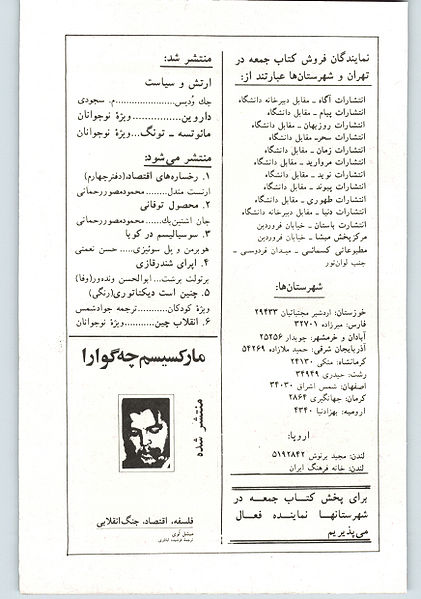 نمایندگان فروش کتاب جمعه در
تهران و شهرستان‌ها عبارتند از:
انتشارات آگاه ـ مقابل دبیرخانه دانشگاه
انتشارات پیام ـ مقابل دانشگاه
انتشارات روزبهان ـ مقابل دانشگاه
انتشارات سحر ـ مقابل دانشگاه
انتشارات زمان ـ مقابل دانشگاه
انتشارات مروارید ـ مقابل دانشگاه
انتشارات نوید ـ مقابل دانشگاه
انتشارات پیوند ـ مقابل دانشگاه
انتشارات طهوری ـ مقابل دانشگاه
انتشارات دنیا ـ مقابل دبیرخانه دانشگاه
انتشارات باستان ـ خیابان فروردین
مرکز پخش مبشا ـ خیابان فروردین
مطبوعاتی کسمائسی ـ میدان فردوسی ـ
جنب لوان‌تور
شهرستان‌ها:
خوزستان: اردشیر مجتبائیان ۲۹۴۳۳
فارس: میرزاده ۳۲۷۰۱
آبادان و خرمشهر: جوبدار ۲۵۲۵۶
آذربایجان شرقی: حمید ملازاده ۵۴۲۶۹
کرمانشاه: متکی ۲۴۱۳۰
رشت: حیدری ۳۴۹۴۹
اصفهان: شمس اشراق ۳۴۰۳۰
کرمان: جهانگیری ۲۸۶۴
ارومیه: بهزادنیا ۴۳۴۰
اروپا:
لندن: مجید برنوش ۵۱۹۲۸۴۲
لندن: خانه فرهنگ ایران
برای پخش کتاب جمعه در
شهرستانها نماینده فعال
می‌پذیریم
منتشر شد:
ارتش و سیاست
جك وُدیس......................م. سجودی
داروین..................ویژهٔ نوجوانان
مائوتسه ـ تونگ...ویژهٔ نوجوانان
منتشر می‌شود:
۱. رخساره‌های اقتصاد،(دفترچهارم)
ارنست مندل.........محمودمصوررحمانی
۲. محصول توفانی
جان اشتین‌بك.......محمودمصوررحمانی
۳. سوسیالیسم در کوبا
هوبرمن و پل سوئیزی.... حسن نعمتی
۴. اپرای شندرقازی
برتولت برشت...ابوالحسن ونده‌ور(وفا)
۵. چنین است دیکتاتوری(رنگی)
ویژهٔ کودکان..........ترجمه جوادشمس
۶. انقلاب چین............ویژهٔ نوجوانان
مارکسیسم چه‌گوارا
منتشر شده
فلسفه، اقتصاد، جنگ انقلابی
میشل لوی
ترجمهٔ فرشیده اباذری